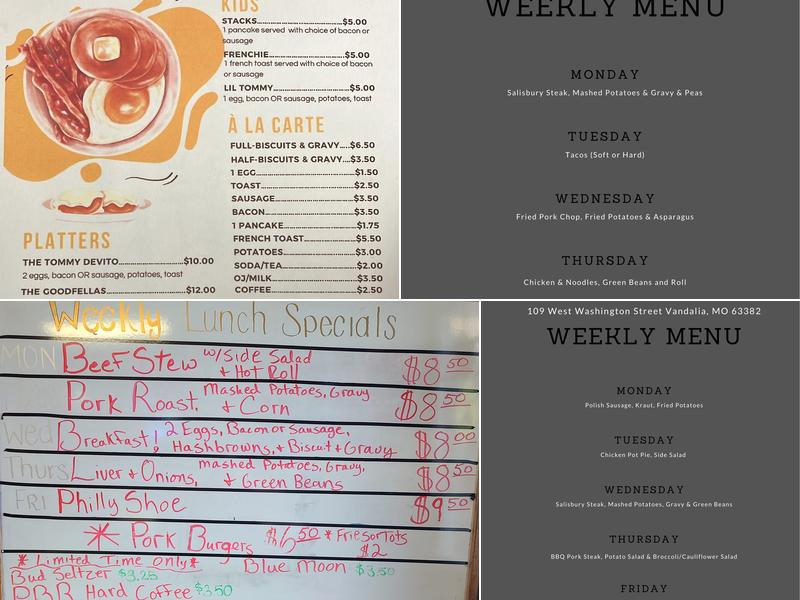 KIDS
STACKS.....................................$5.00
1 pancake served with choice of bacon or
sausage
FRENCHIE................................$5.00
1 french toast served with choice of bacon
or sausage
LIL TOMMY..............................$5.00
1 egg, bacon OR sausage, potatoes, toast
À LA CARTE
FULL-BISCUITS & GRAVY.....$6.50
HALF-BISCUITS & GRAVY....$3.50
1 EGG.........................................$1.50
TOAST.......................................$2.50
SAUSAGE.................................$3.50
BACON.....................................$3.50
1 PANCAKE..............................$1.75
FRENCH TOAST......................$5.50
POTATOES...............................$3.00
SODA/TEA................................$2.00
OJ/MILK...................................$3.50
COFFEE....................................$2.50
PLATTERS
THE TOMMY DEVITO.........................$10.00
2 eggs, bacon OR sausage, potatoes, toast
THE GOODFELLAS...........................$12.00
WEEKLY MENU
MONDAY
Salisbury Steak, Mashed Potatoes & Gravy & Peas
TUESDAY
Tacos (Soft or Hard)
WEDNESDAY
Fried Pork Chop, Fried Potatoes & Asparagus
THURSDAY
Chicken & Noodles, Green Beans and Roll
Weekly Lunch Specials
MON Beef Stew w/Side Salad + Hot Roll $8 50
Pork Roast, Mashed Potatoes, Gravy + Corn $8 50
Wed Breakfast! 2 Eggs, Bacon or Sausage, Hashbrowns, + Biscuit + Gravy $8 00
Thurs Liver + Onions, mashed Potatoes, Gravy, + Green Beans $8 50
FRI Philly Shoe $9 50
* Pork Burgers $6 50 * Fries or Tots $2
* Limited Time only *
Bud Seltzer $3.25 Blue Moon $3.50
PBR Hard Coffee $3.50
109 West Washington Street Vandalia, MO 63382
WEEKLY MENU
MONDAY
Polish Sausage, Kraut, Fried Potatoes
TUESDAY
Chicken Pot Pie, Side Salad
WEDNESDAY
Salisbury Steak, Mashed Potatoes, Gravy & Green Beans
THURSDAY
BBQ Pork Steak, Potato Salad & Broccoli/Cauliflower Salad
FRIDAY